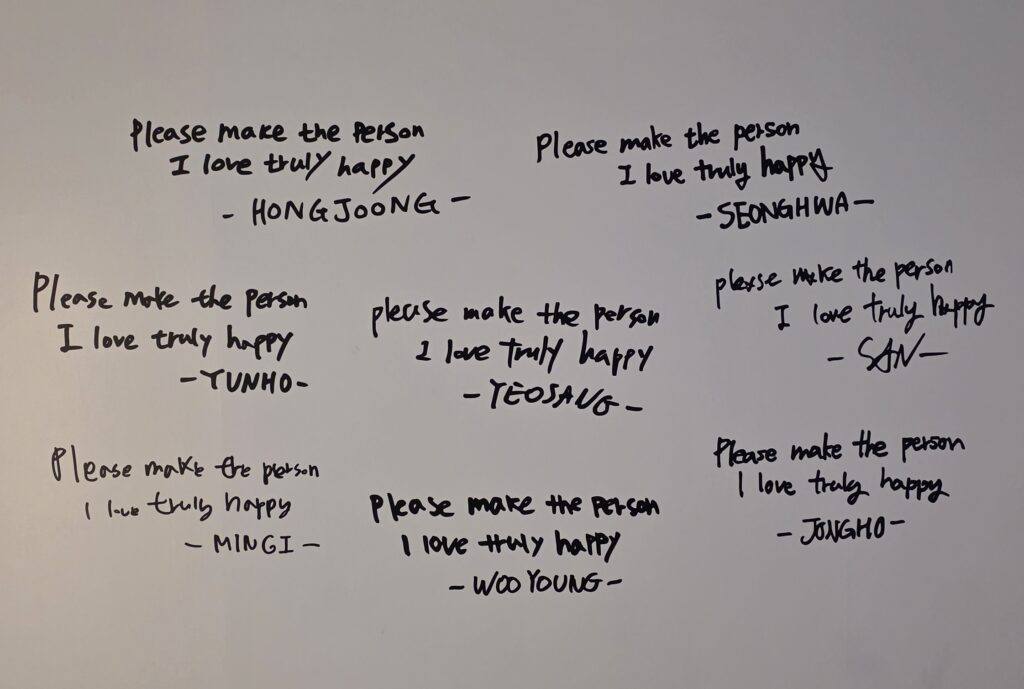 Please make the person
I love truly happy
- HONGJOONG -
Please make the person
I love truly happy
- SEONGHWA -
Please make the person
I love truly happy
- YUNHO -
please make the person
I love truly happy
- YEOSANG -
please make the person
I love truly happy
- SAN -
Please make the person
I love truly happy
- MINGI -
Please make the person
I love truly happy
- WOOYOUNG -
Please make the person
I love truly happy
- JONGHO -